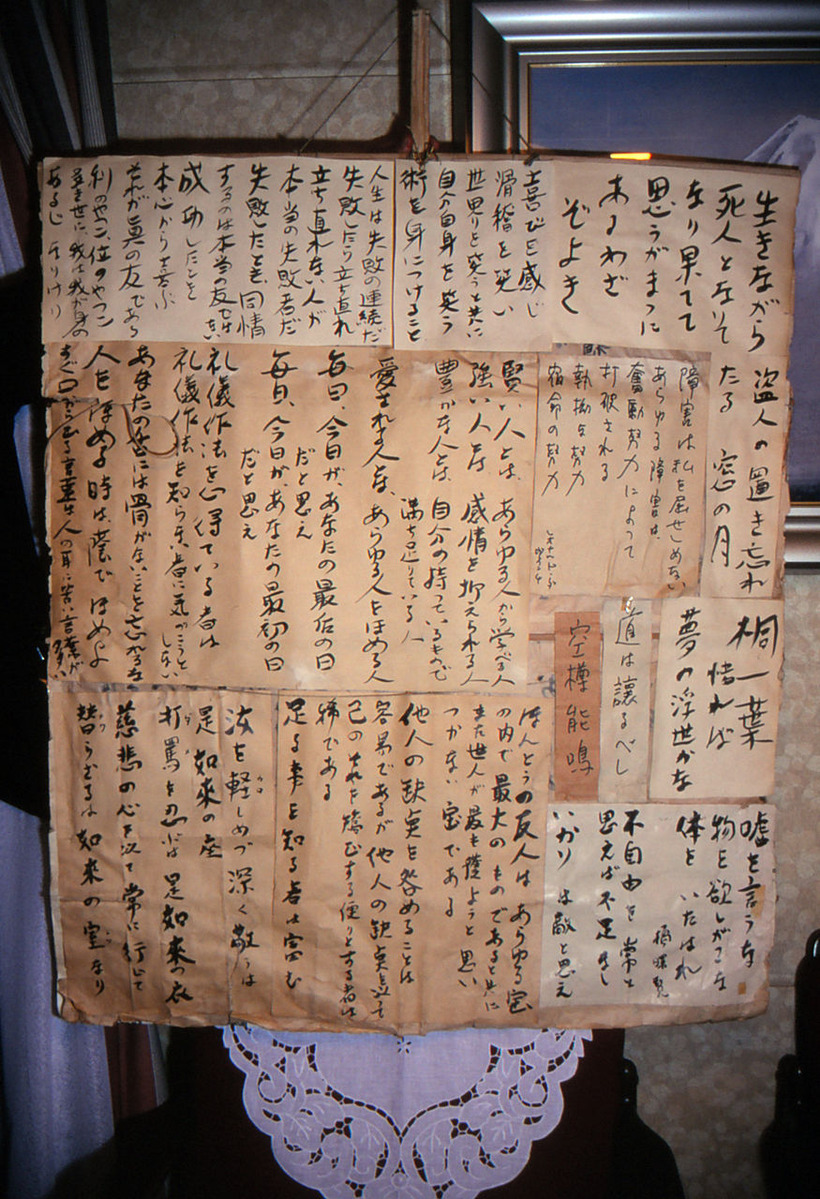 生きながら
死人となりて
なり果てて
思うがまゝに
あるわざ
ぞよき
盗人の置き忘れ
たる 窓の月
喜びを感じ
滑稽を笑い
世界りを笑うと共に
自分自身を笑う
術を身につけること
人生は失敗の連続だ
失敗したり立ち直れ
立ち直れない人が
本当の失敗者だ
失敗したとき、同情
するのは本当の友でない
成功したことを
本心から喜ぶ
それが真の友であら
あるじ なりけり
障害は私を屈せしめない
あらゆる障害は、
奮励努力によって
打破される
執拗な努力
宿命の努力
賢い人とは、あらゆる人から学べる人
強い人とは、感情を抑えられる人
豊かな人とは、自分の持っているもので
満ち足りている人
愛される人とは、あらゆる人をほめる人
毎日、今日が、あなたの最后の日
だと思え
毎日、今日が、あなたの最初の日
だと思え
礼儀作法を心得ている者は
礼儀作法を知らない者に気がつこうと
しない
あなたの舌には骨がないことを忘れるな
人をほめる時は、蔭でほめよ
桐一葉
惜れば
夢の浮世かな
道は譲るべし
空樽能鳴
嘘を言うな
物を欲しがるな
体をいたはれ
不自由を常と
思えば不足なし
いかりは敵と思え
ほんとうの友人はあらゆる宝
の内で最大のものであると共に
また世人が最も獲ようと思い
つかない宝である
他人の缺点を咎めることは
容易であるが他人の缺点を以て
己のそれを矯むする便りとする者は
稀である
足る事を知る者は富む
汝を軽しめづ深く敬うは
足 如来の座
打罵を忍ぶは是如来の衣
慈悲の心を以て常に行じて
替うむるは如来の室なり